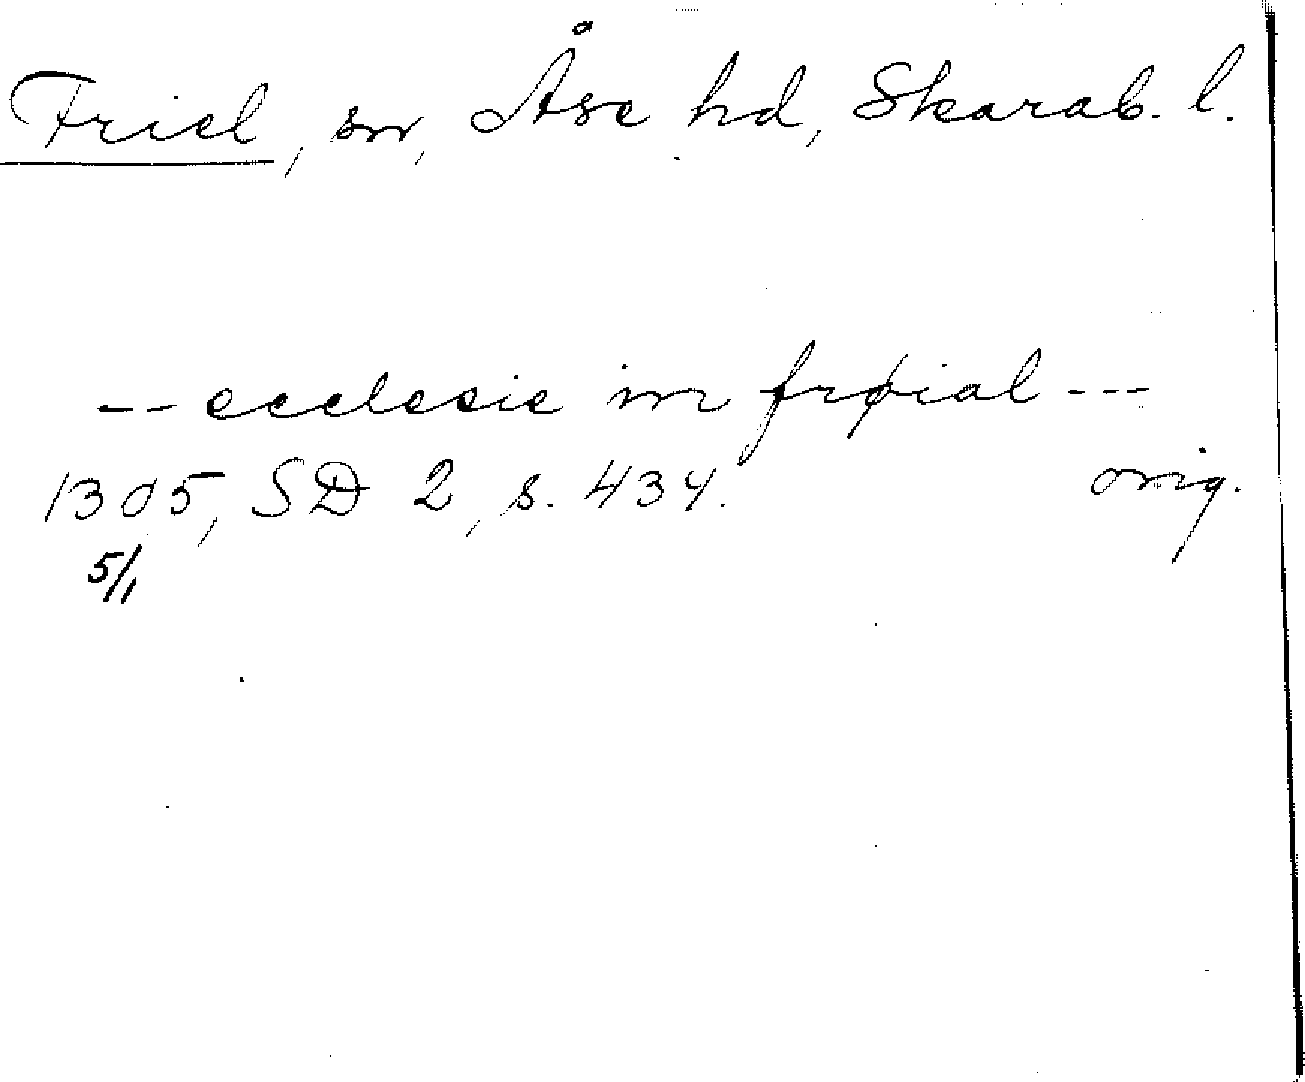 Friel, sn, Åse hd, Skarab. l.
-- ecclesie in frøial ---
1305, SD 2, s. 434. orig.
5/1